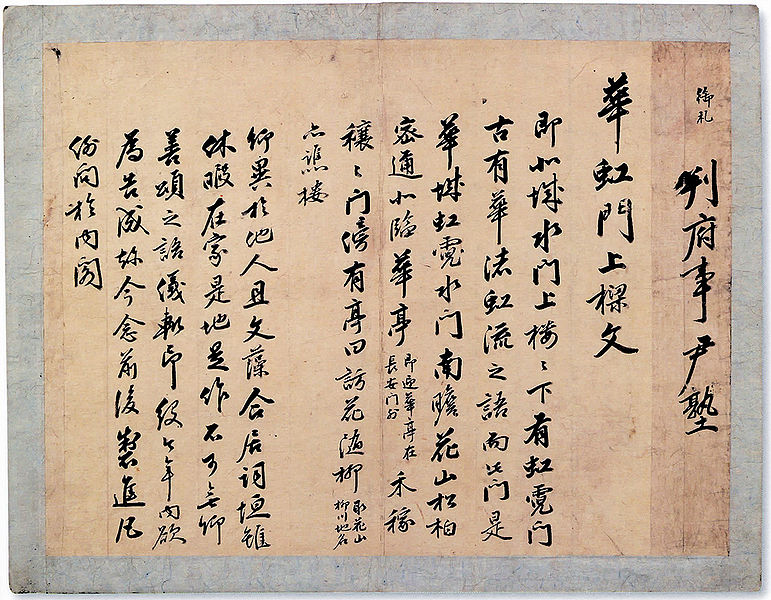 御札
判府事 尹塾
華虹門上樑文
即北城水門上樓〻下有虹霓門
古有華渚虹流之語而此門是
華城虹霓水門南瞻花山松柏
密邇北臨華亭即迎華亭在長安門外禾稼
穰〻門傍有亭曰訪花隨柳取花山柳川地名
亦譙樓
卿異於他人且文藻合居詞垣雖
休暇在家是地是作不可無卿
善頌之語儀軌即役今年內欲
爲告成故今念前後製進凡
份問於內閣